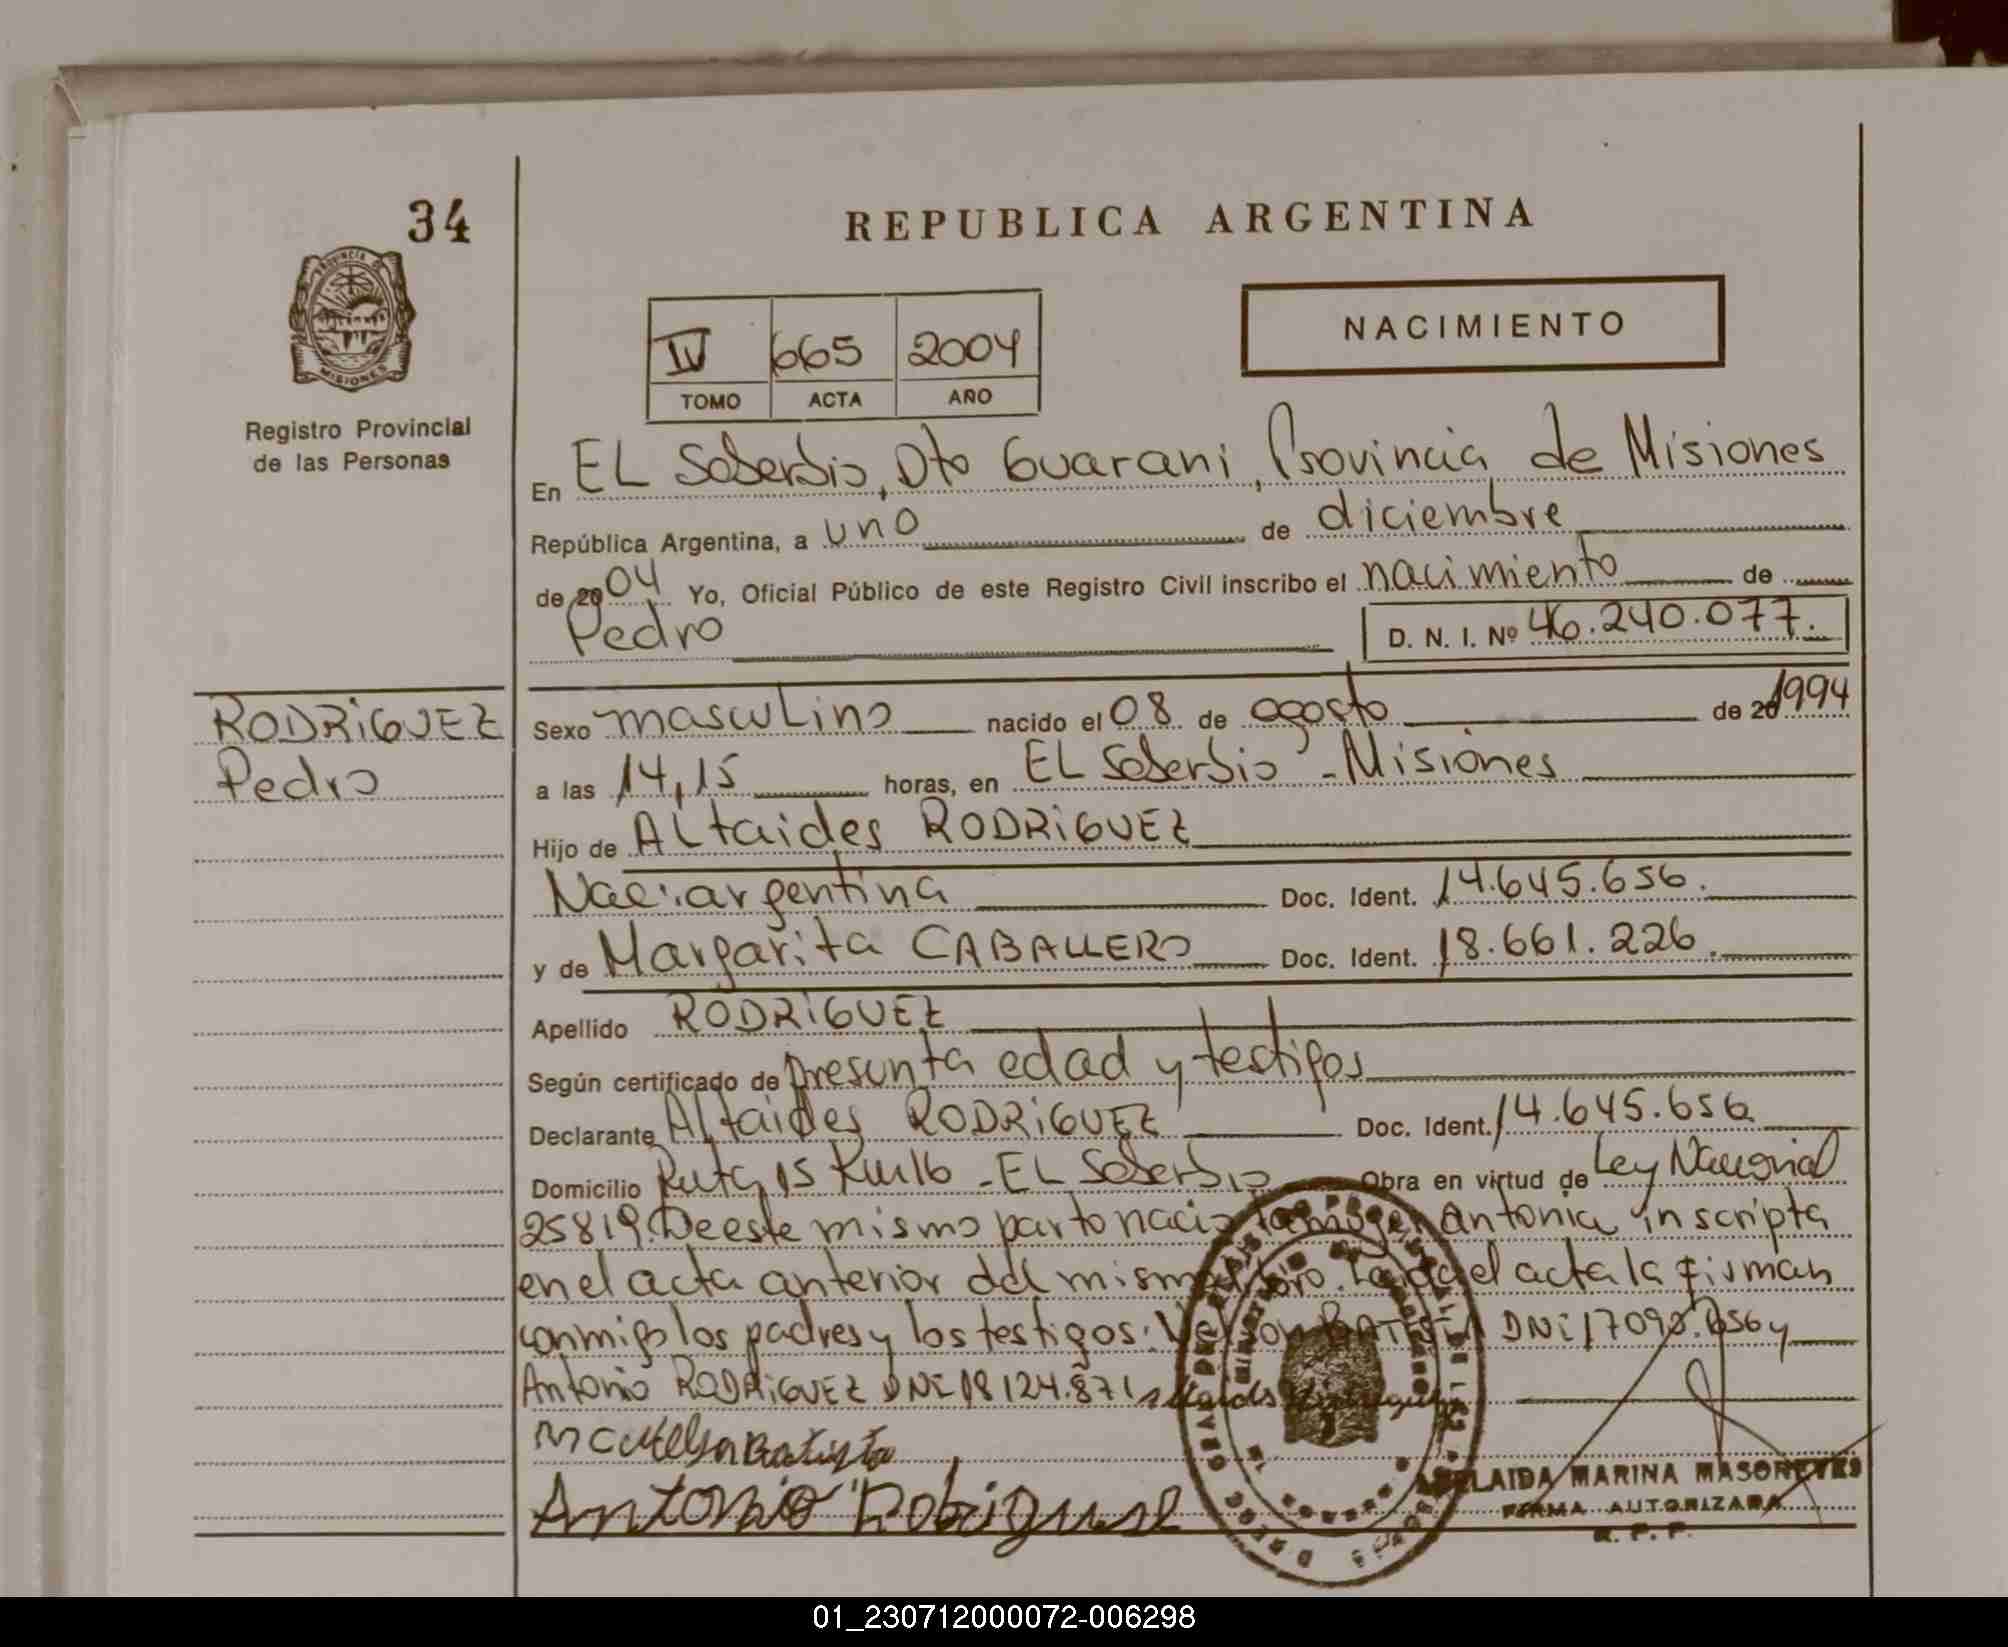 34
REPUBLICA ARGENTINA
PROVINCIA DE
MISIONES
Registro Provincial
de las Personas
IV 665 2004
TOMO ACTA AÑO
NACIMIENTO
En EL Soberbio, Dto Guarani, Provincia de Misiones
República Argentina, a uno de diciembre
de 2004 Yo, Oficial Público de este Registro Civil inscribo el nacimiento de
Pedro D. N. I. Nº 46.240.077.
RODRiGUEZ
Pedro
Sexo masculino nacido el 08 de agosto de 20 1994
a las 14,15 horas, en EL Soberbio - Misiones
Hijo de ALtaides RODRiGUEZ
Nac: argentina Doc. Ident. 14.645.656.
y de Margarita CABALLERO Doc. Ident. 18.661.226.
Apellido RODRiGUEZ
Según certificado de presunta edad y testigos
Declarante ALtaides RODRiGUEZ Doc. Ident. 14.645.656
Domicilio Ruta 15 Km16 - EL Soberbio Obra en virtud de Ley Nacional
25819. De este mismo parto nacio Antonia inscripta
en el acta anterior del mismo libro. Leida el acta la firman
conmigo los padres y los testigos: BATISTA DNi 17090.656 y
Antonio RODRiGUEZ DNi 18124.871
Batista
Antonio Rodriguese
ADELAIDA MARINA MASONEYES
FIRMA AUTORIZADA
R. P. P.
01_230712000072-006298